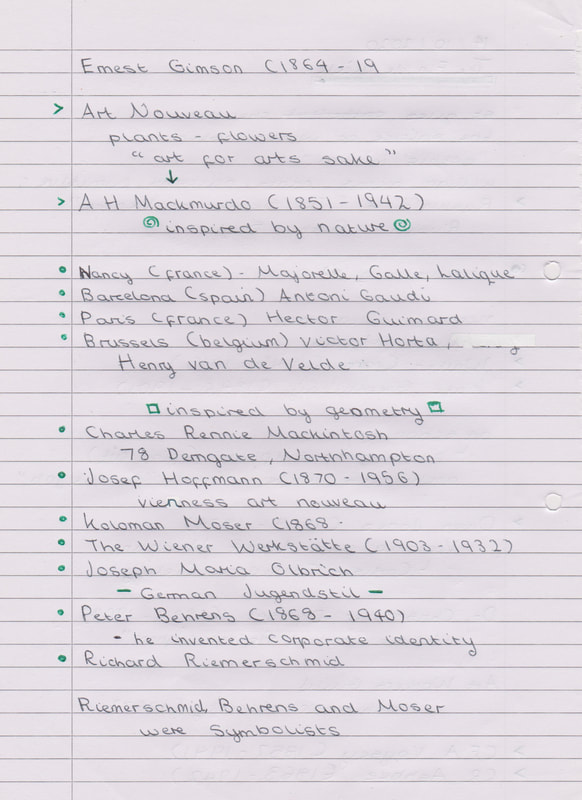 Ernest Gimson (1864 - 19
> Art Nouveau
plants - flowers
"art for arts sake"
↓
> A H Mackmurdo (1851 - 1942)
inspired by nature
• Nancy (france) - Majorelle, Galle, Lalique
• Barcelona (spain) Antoni Gaudi
• Paris (france) Hector Guimard
• Brussels (belgium) Victor Horta,
Henry van de Velde
inspired by geometry
• Charles Rennie Mackintosh
78 Derngate, Northhampton
• Josef Hoffmann (1870 - 1956)
vienness art nouveau
• Koloman Moser (1868 -
• The Wiener Werkstätte (1903 - 1932)
• Joseph Maria Olbrich
- German Jugendstil -
• Peter Behrens (1868 - 1940)
- he invented corporate identity
• Richard Riemerschmid
Riemerschmid, Behrens and Moser
were Symbolists